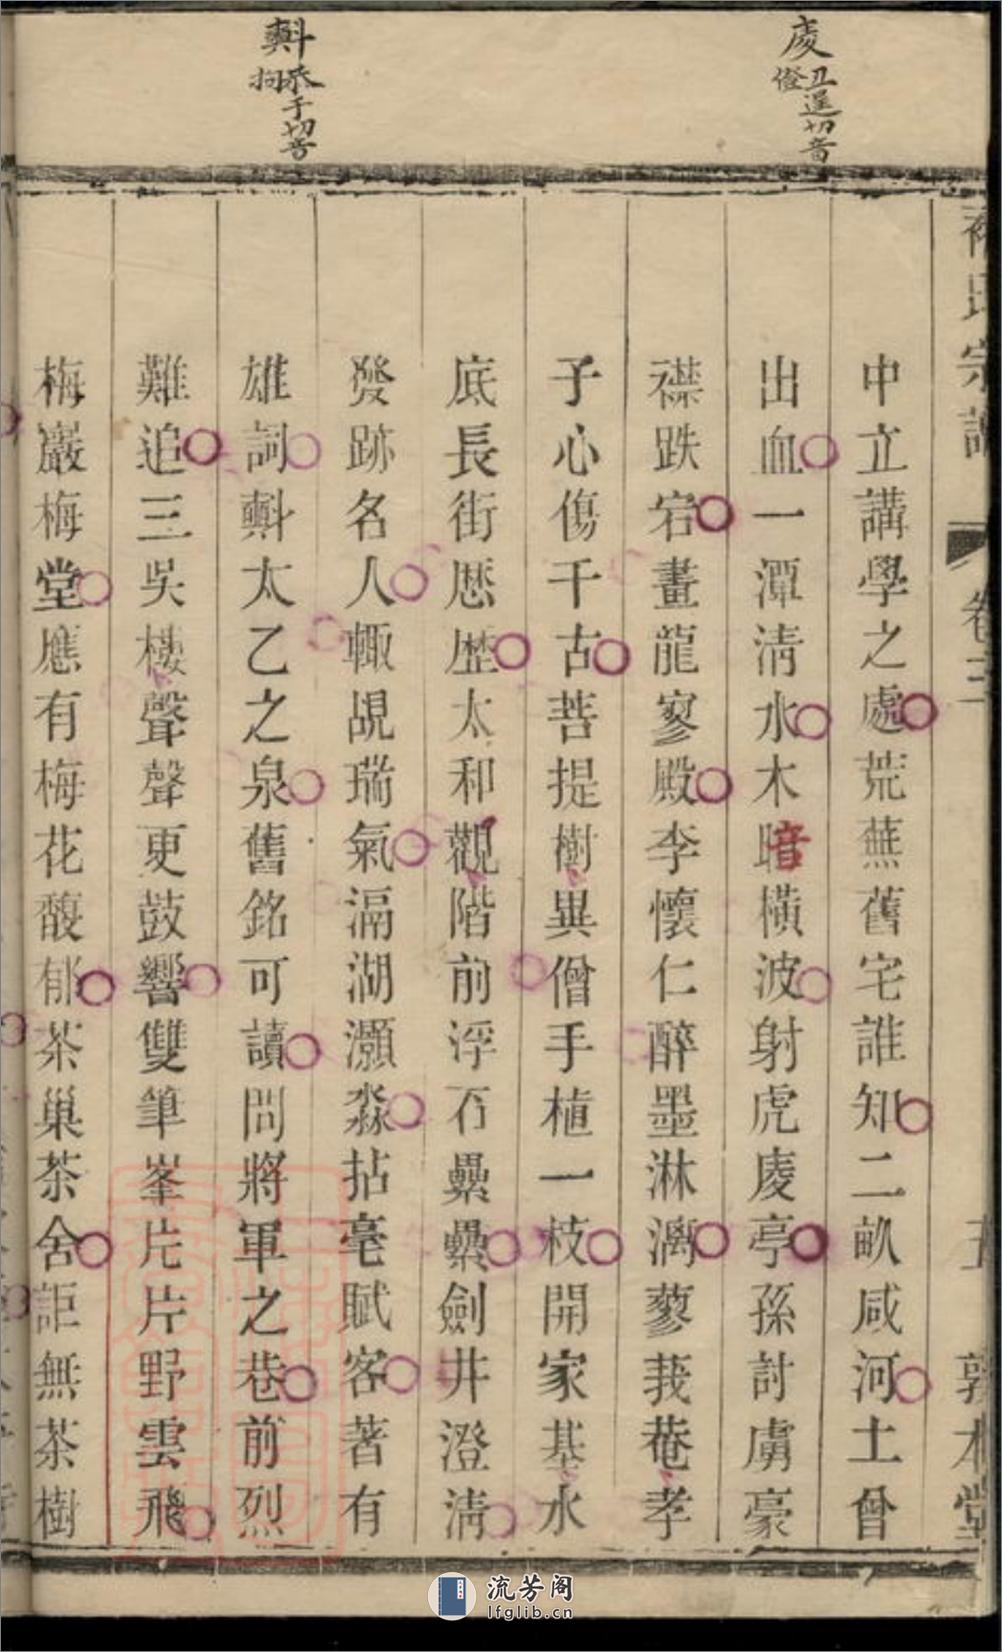 庱丑逞切音
㒓
𣂏恭于切音
拘
氏宗譜 卷三 五 敦本堂
中立講學之處荒蕪舊宅誰知二畝咸河土曾
出血一潭清水木暗橫波射虎庱亭孫討虜豪
襟跌宕畫龍寥殿李懷仁醉墨淋漓蓼莪菴孝
子心傷千古菩提樹異僧手植一枝開家基水
底長街歷歷太和觀階前浮石纍纍劍井澄清
發跡名人輙覘瑞氣滆湖灝淼拈毫賦客著有
雄詞𣂏太乙之泉舊銘可讀問將軍之巷前烈
難追三吳樓聲聲更鼓響雙筆峯片片野雲飛
梅巖梅堂應有梅花馥郁茶巢茶舍詎無茶樹
流芳阁
lfglib.cn